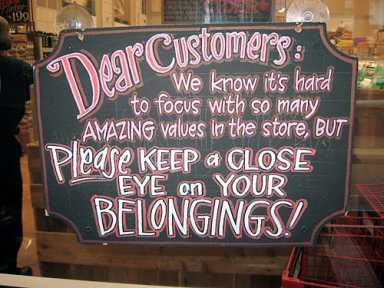 Dear Customers:
We know it's hard
to focus with so many
AMAZING values in the store, BUT
Please KEEP a CLOSE
EYE on YOUR
BELONGINGS!